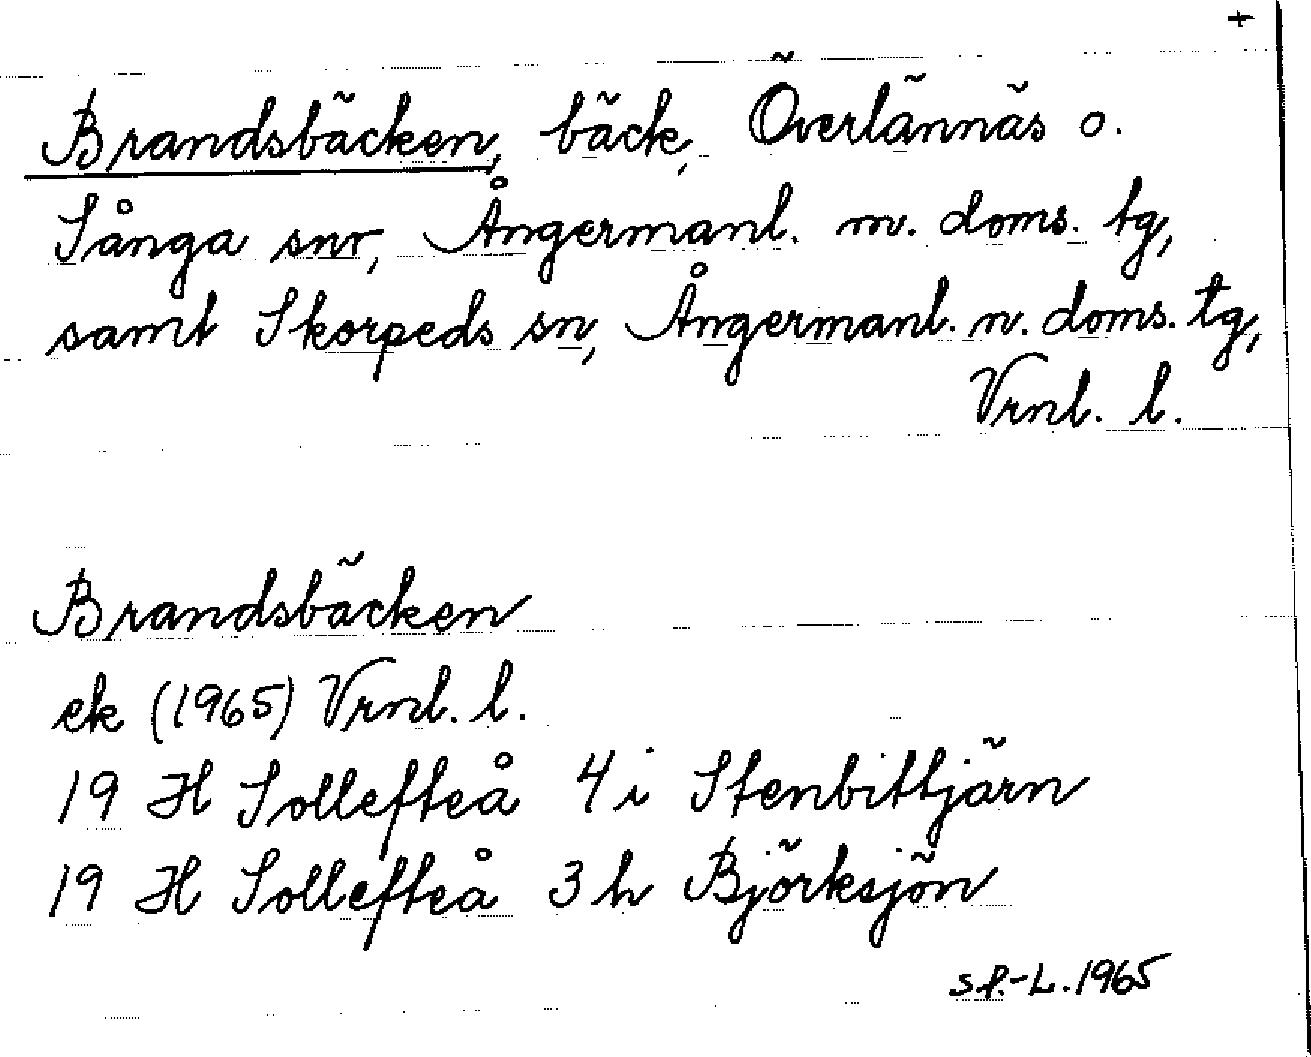 +
Brandsbäcken, bäck, Överlännäs o.
Sånga snr, Ångermanl. m. doms. tg,
samt Skorpeds sn, Ångermanl. n. doms. tg,
Vrnl. l.
Brandsbäcken
ek (1965) Vrnl. l.
19 H Sollefteå 4 i Stenbittjärn
19 H Sollefteå 3 h Björksjön
s.f.-L. 1965